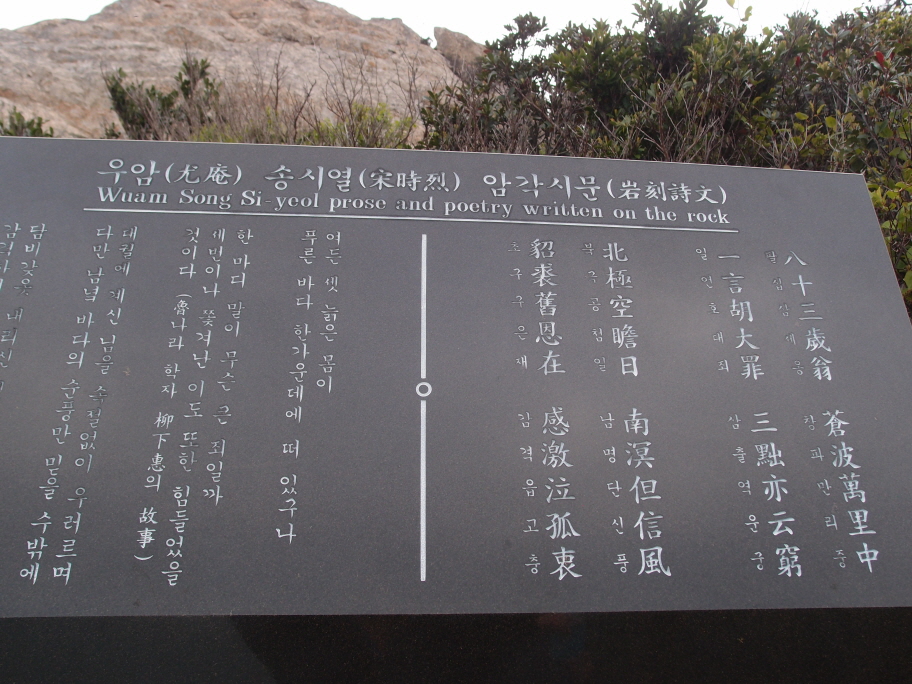 우암(尤庵) 송시열(宋時烈) 암각시문(岩刻詩文)
Wuam Song Si-yeol prose and poetry written on the rock
八十三歲翁 蒼波萬里中
팔십삼세옹 창파만리중
一言胡大罪 三黜亦云窮
일언호대죄 삼출역운궁
北極空瞻日 南溟但信風
북극공첨일 남명단신풍
貂裘舊恩在 感激泣孤衷
초구구은재 감격읍고충
여든 셋 늙은 몸이
푸른 바다 한가운데에 떠 있구나
한 마디 말이 무슨 큰 죄일까
세번이나 쫓겨난 이도 또한 힘들었을
것이다 (魯나라 학자 柳下惠의 故事)
대궐에 계신 님을 속절없이 우러르며
다만 남녘 바다의 순풍만 믿을 수밖에
담비갖옷 내리신